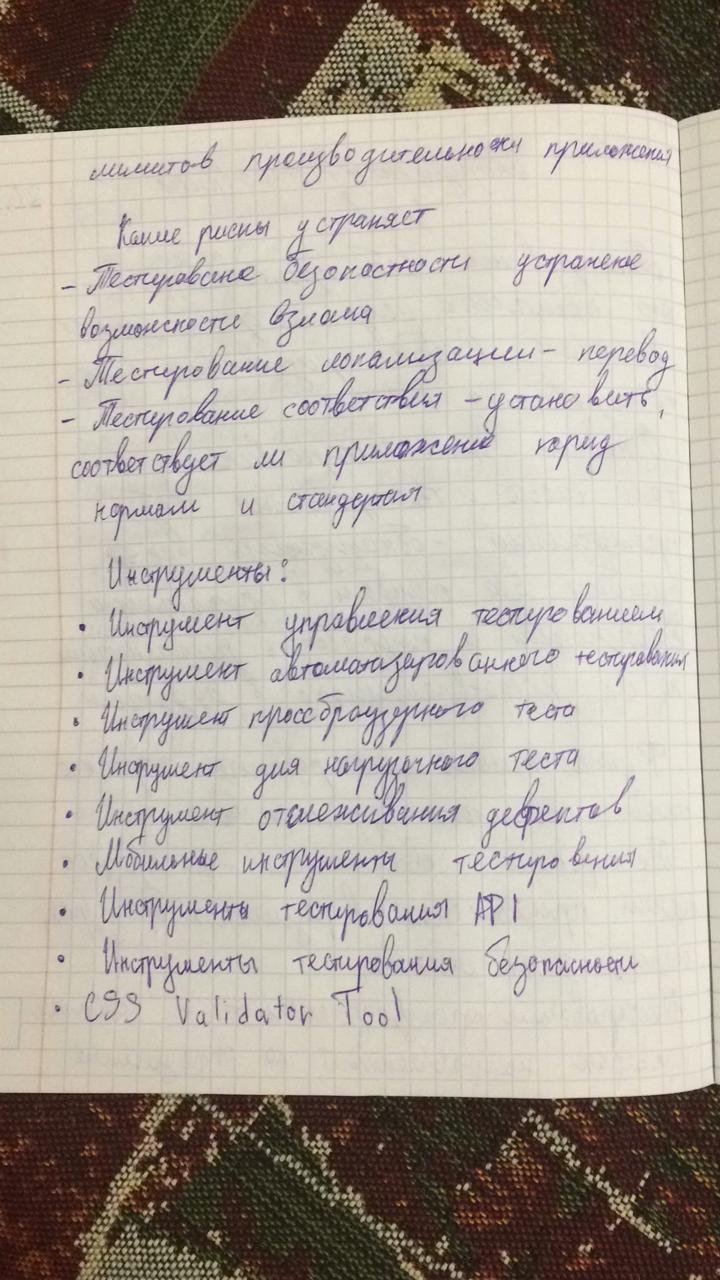 лимитов производительности приложения
Какие риски устраняет
- Тестирование безопастности устранение
возможности взлома
- Тестирование локализации - перевод
- Тестирование соответствия - установить,
соответствует ли приложение юрид
нормам и стандартам
Инструменты:
• Инструмент управления тестированием
• Инструмент автоматазированного тестирования
• Инструмент кроссбраузерного теста
• Инструмент для нагрузочного теста
• Инструмент отслеживания дефектов
• Мобильные инструменты тестирования
• Инструменты тестирования API
• Инструменты тестирования безопасности
• CSS Validator Tool